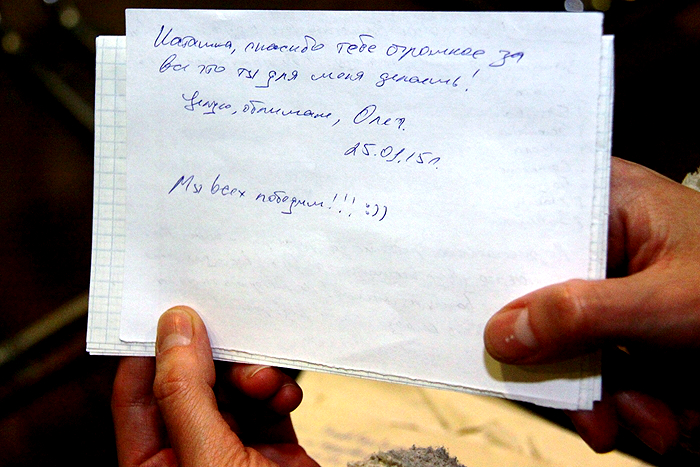 Наташка, спасибо тебе огромное за
все что ты для меня делаешь!
Целую, обнимаю, Олег.
25.01.15г.
Мы всех победим!!! :))